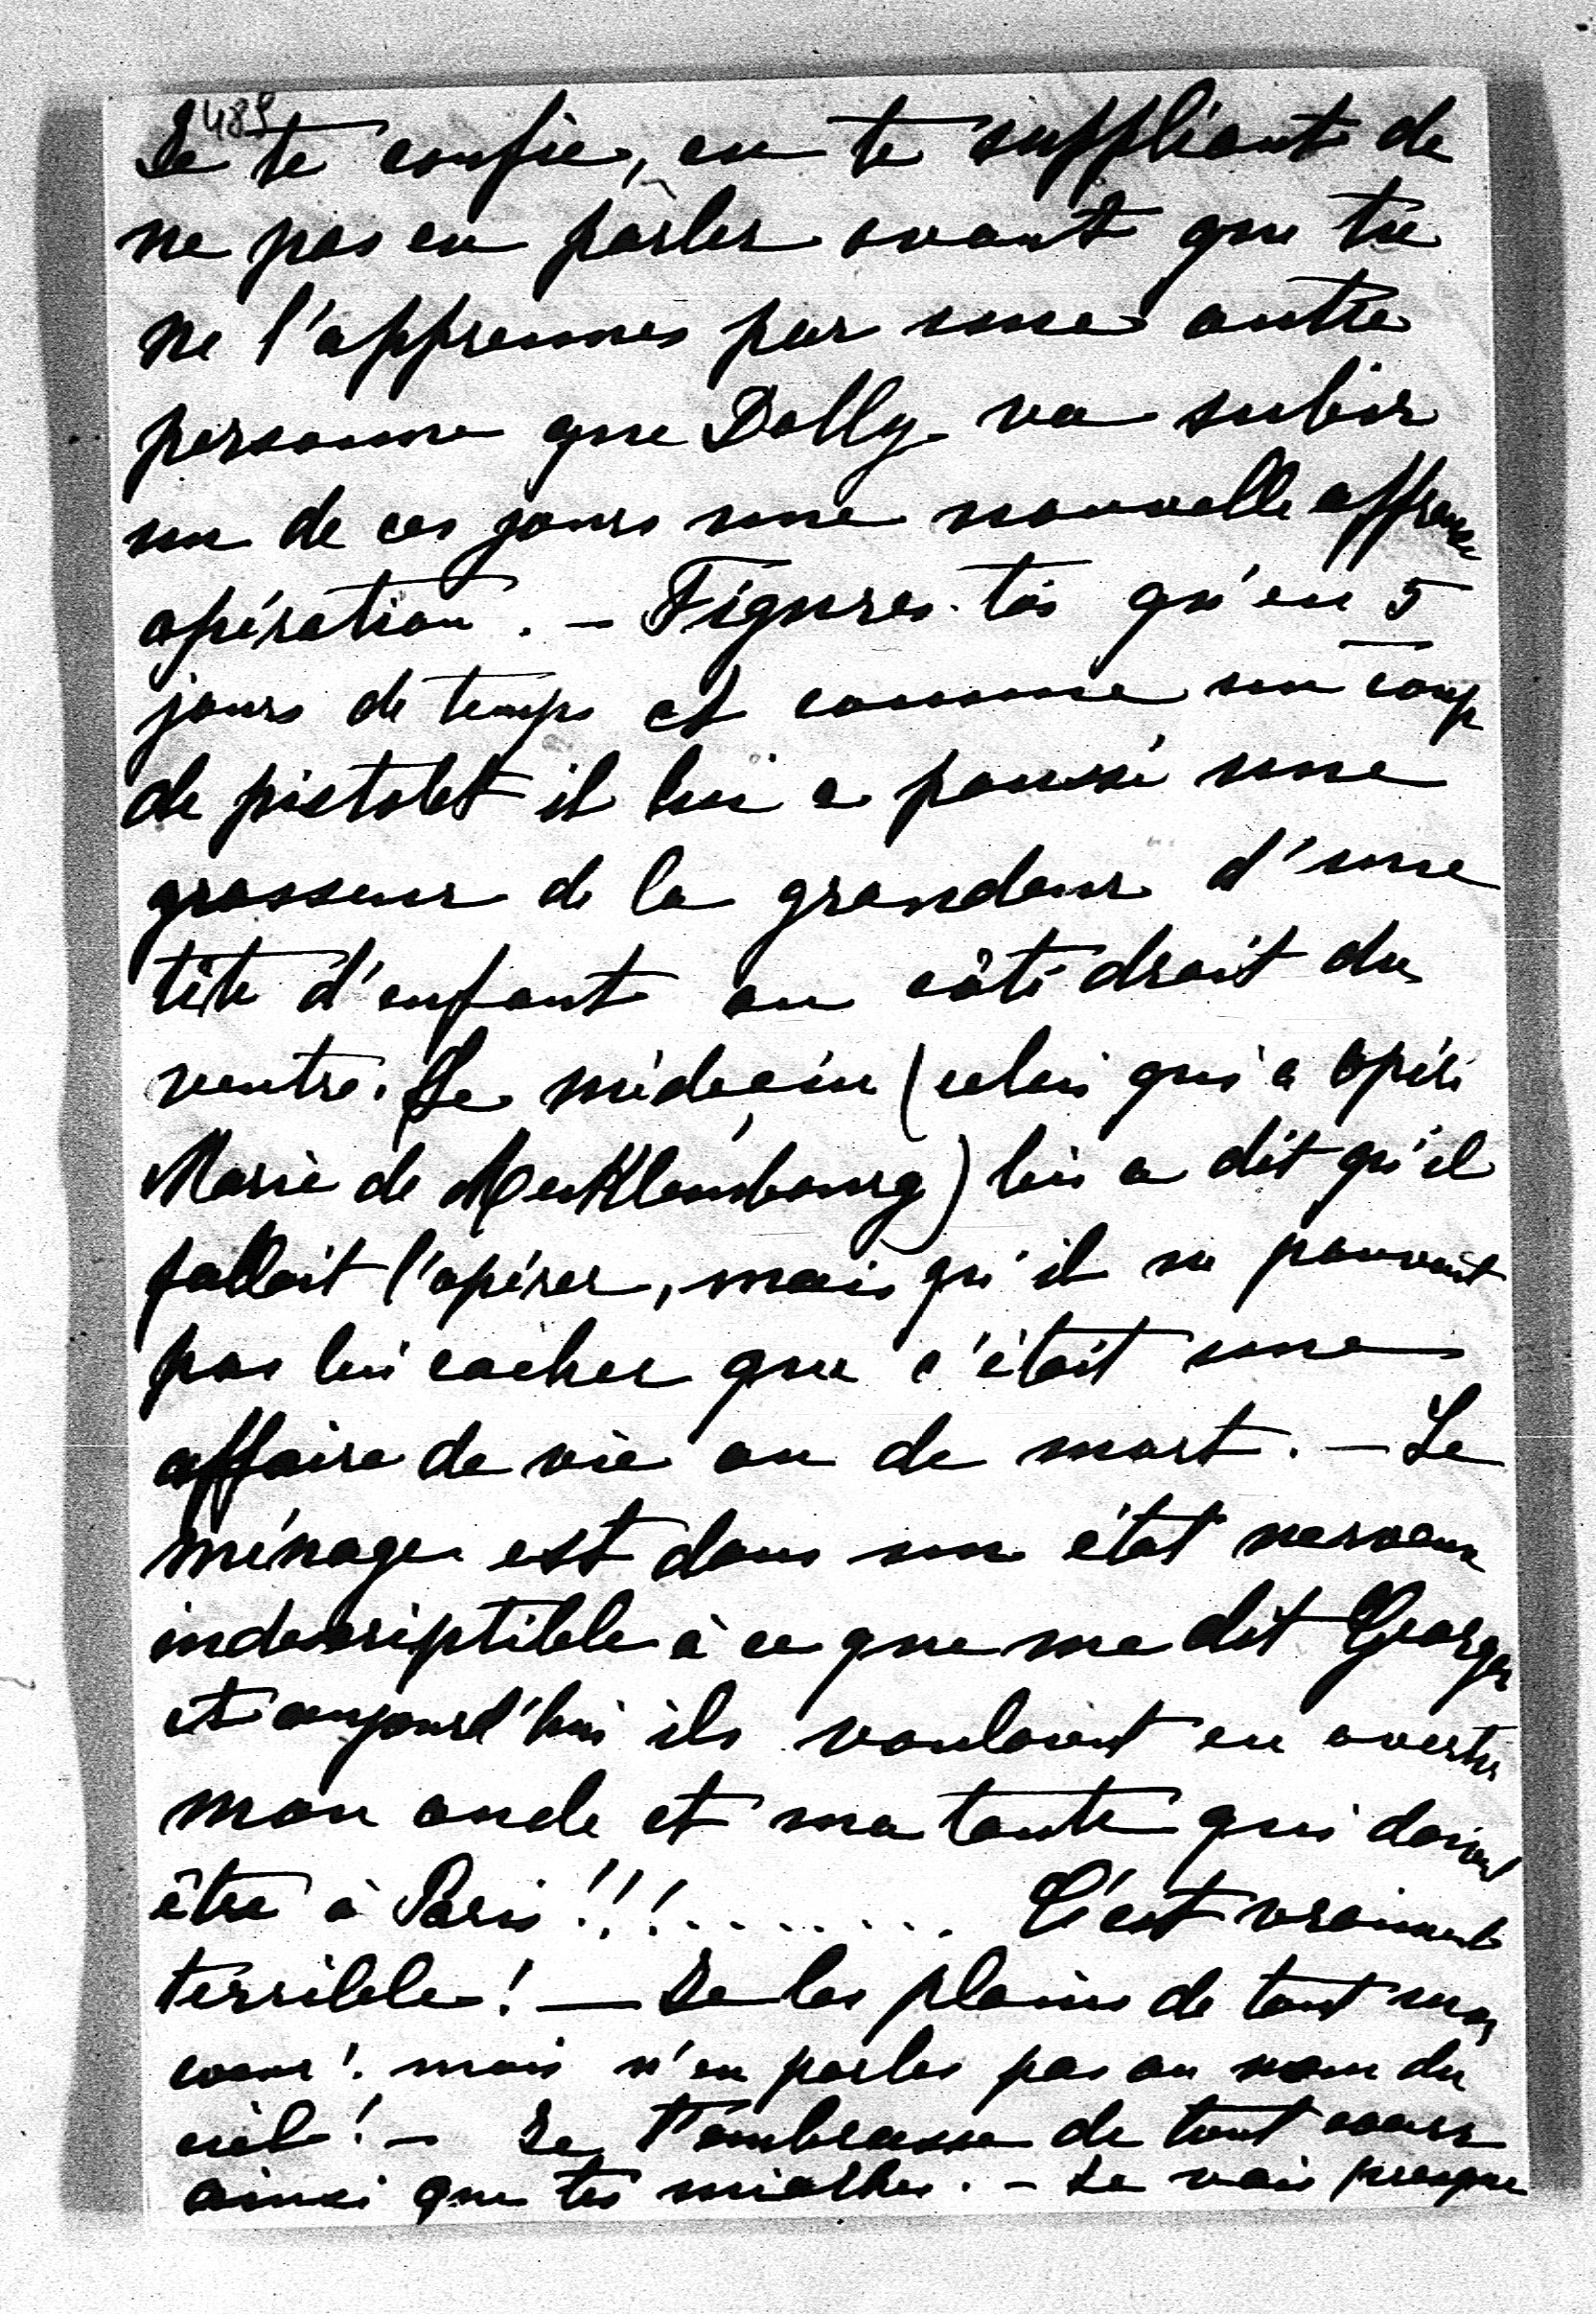 489
Je te confie, en te suppliant de
ne pas en parler avant que tu
ne l'apprennes par une autre
personne que Dolly va subir
un de ces jours une nouvelle affreuse
opération. — Figures-toi qu'en 5
jours de temps et comme un coup
de pistolet il lui a poussé une
grosseur de la grandeur d'une
tête d'enfant au côté droit du
ventre. Le médecin (celui qui a opéré
Marie de Mecklembourg) lui a dit qu'il
fallait l'opérer, mais qu'il ne pouvait
pas lui cacher que c'était une
affaire de vie ou de mort. — Le
ménage est dans un état nerveux
indescriptible à ce que me dit Georges
et aujourd'hui ils voulaient en avertir
mon oncle et ma tante qui doivent
être à Paris!!!......... C'est vraiment
terrible! — Je les plains de tout mon
coeur! mais n'en parles pas au nom du
ciel! — Je t'embrasse de tout coeur
ainsi que tes mioches. — Je vais presque